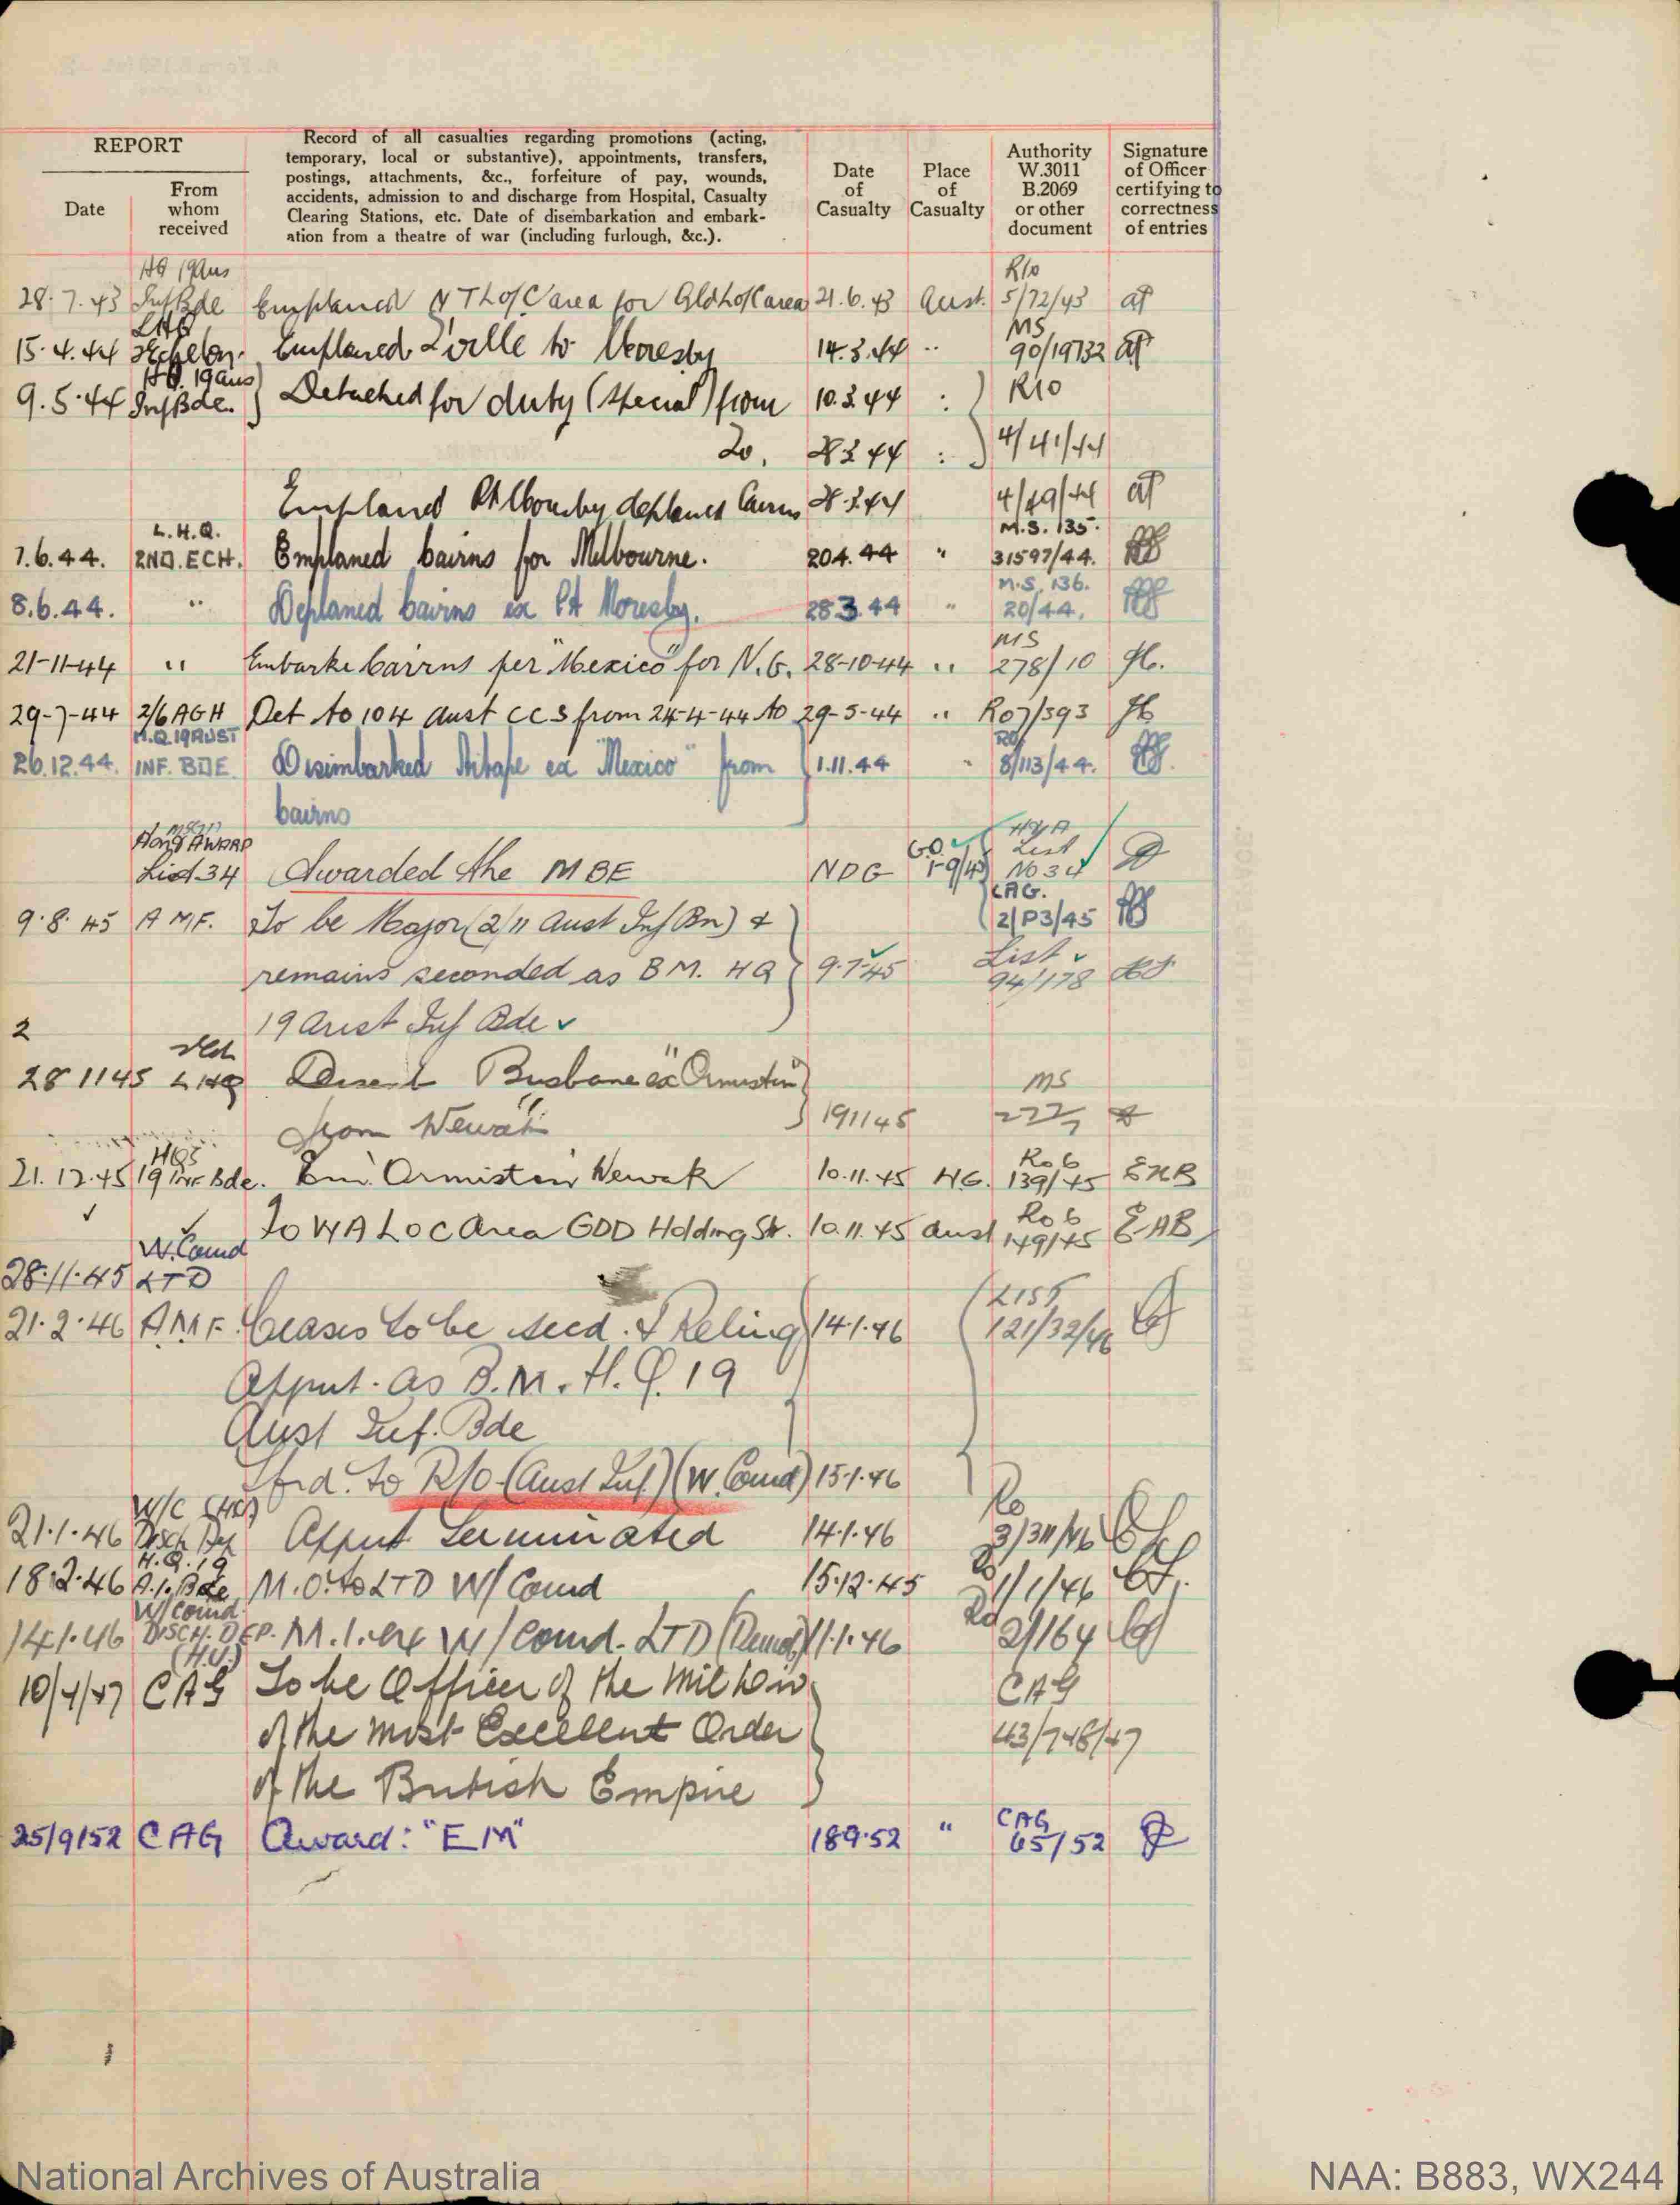 REPORT
Date
From
whom
received
Record of all casualties regarding promotions (acting,
temporary, local or substantive), appointments, transfers,
postings, attachments, &c., forfeiture of pay, wounds,
accidents, admission to and discharge from Hospital, Casualty
Clearing Stations, etc. Date of disembarkation and embark-
ation from a theatre of war (including furlough, &c.).
Date
of
Casualty
Place
of
Casualty
Authority
W.3011
B.2069
or other
document
Signature
of Officer
certifying to
correctness
of entries
HQ 19 Aus R/o
28.7.43 Inf Bde Emplaned N T L of C area for Qld L of C area 21.6.43 Aust. 5/72/43
LHQ MS
15.4.44 2 Echelon. Emplaned T'ville to Moresby 14.3.44 " 90/19732
HQ. 19 Aus
9.5.44 Inf Bde. Detached for duty (special) from 10.3.44 : R10
To, 28 3 44 : 4/41/44
Emplaned Pt Moresby deplaned Cairns 28.3.44 4/49/44
L.H.Q. M.S. 135.
7.6.44. 2ND. ECH. Emplaned Cairns for Melbourne. 20 4.44 " 31597/44.
M.S. 136.
8.6.44. " Deplaned Cairns ex Pt Moresby. 28 3.44 " 20/44.
MS
21-11-44 " Embarke Cairns per "Mexico" for N.G. 28-10-44 " 278/10
29-7-44 2/6 AGH Det to 104 Aust CCS from 24-4-44 to 29-5-44 " Ro7/393
H.Q 19 AUST RO
26.12.44. INF. BDE Disimbarked Aitape ex "Mexico" from 1.11.44 " 8/113/44.
Cairns
Hon & AWARD
List 34 Awarded the MBE NDG List No 34
CAG.
2/P3/45
9.8.45 A M F. To be Major (2/11 Aust Inf Bn) &
remains seconded as B M. HQ 9.7.45 List 94/178
19 Aust Inf Bde
2
28 11 45 LHQ Disemb Brisbane ex "Ormiston" MS
from Wewak 19 11 45 222
HQ Ro 6
21.12.45 19 Inf Bde. Em. Ormiston Wewak 10.11.45 NG. 139/45 EAB
Ro 6
To WA L oC Area GDD Holding Str. 10.11.45 Aust 149/45 EAB
W. Comd
28.11.45 LTD
21.2.46 AMF. Ceases to be secd. & Relinq 14.1.46 121/32/46
Apput. as B.M. H.Q. 19
Aust Inf. Bde
tfrd. to R/O (Aust Inf.) (W. Comd) 15.1.46
W/C (HQ) Ro
21.1.46 Disch Dep Apput terminated 14.1.46
H.Q. 19
18.2.46 A.I. Bde M.O. to LTD W/Comd 15.12.45 1/1/46
W/Comd Ro
14.1.46 DISCH. DEP. M.I. ex W/Comd. LTD 11.1.46 2/164
10/4/47 CAG To be Officer of the Mil Div CAG
of the Most Excellent Order 43/748/47
of the British Empire
25/9/52 CAG Award: "EM" 18 9.52 " CAG 65/52
National Archives of Australia
NAA: B883, WX244